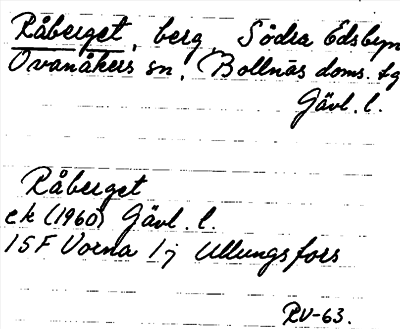 Råberget, berg, Södra Edsbyn
Ovanåkers sn, Bollnäs doms. tg
Gävl. l.
Råberget
ek (1960) Gävl. l.
15F Voxna 1j Ullungsfors
RV-63.